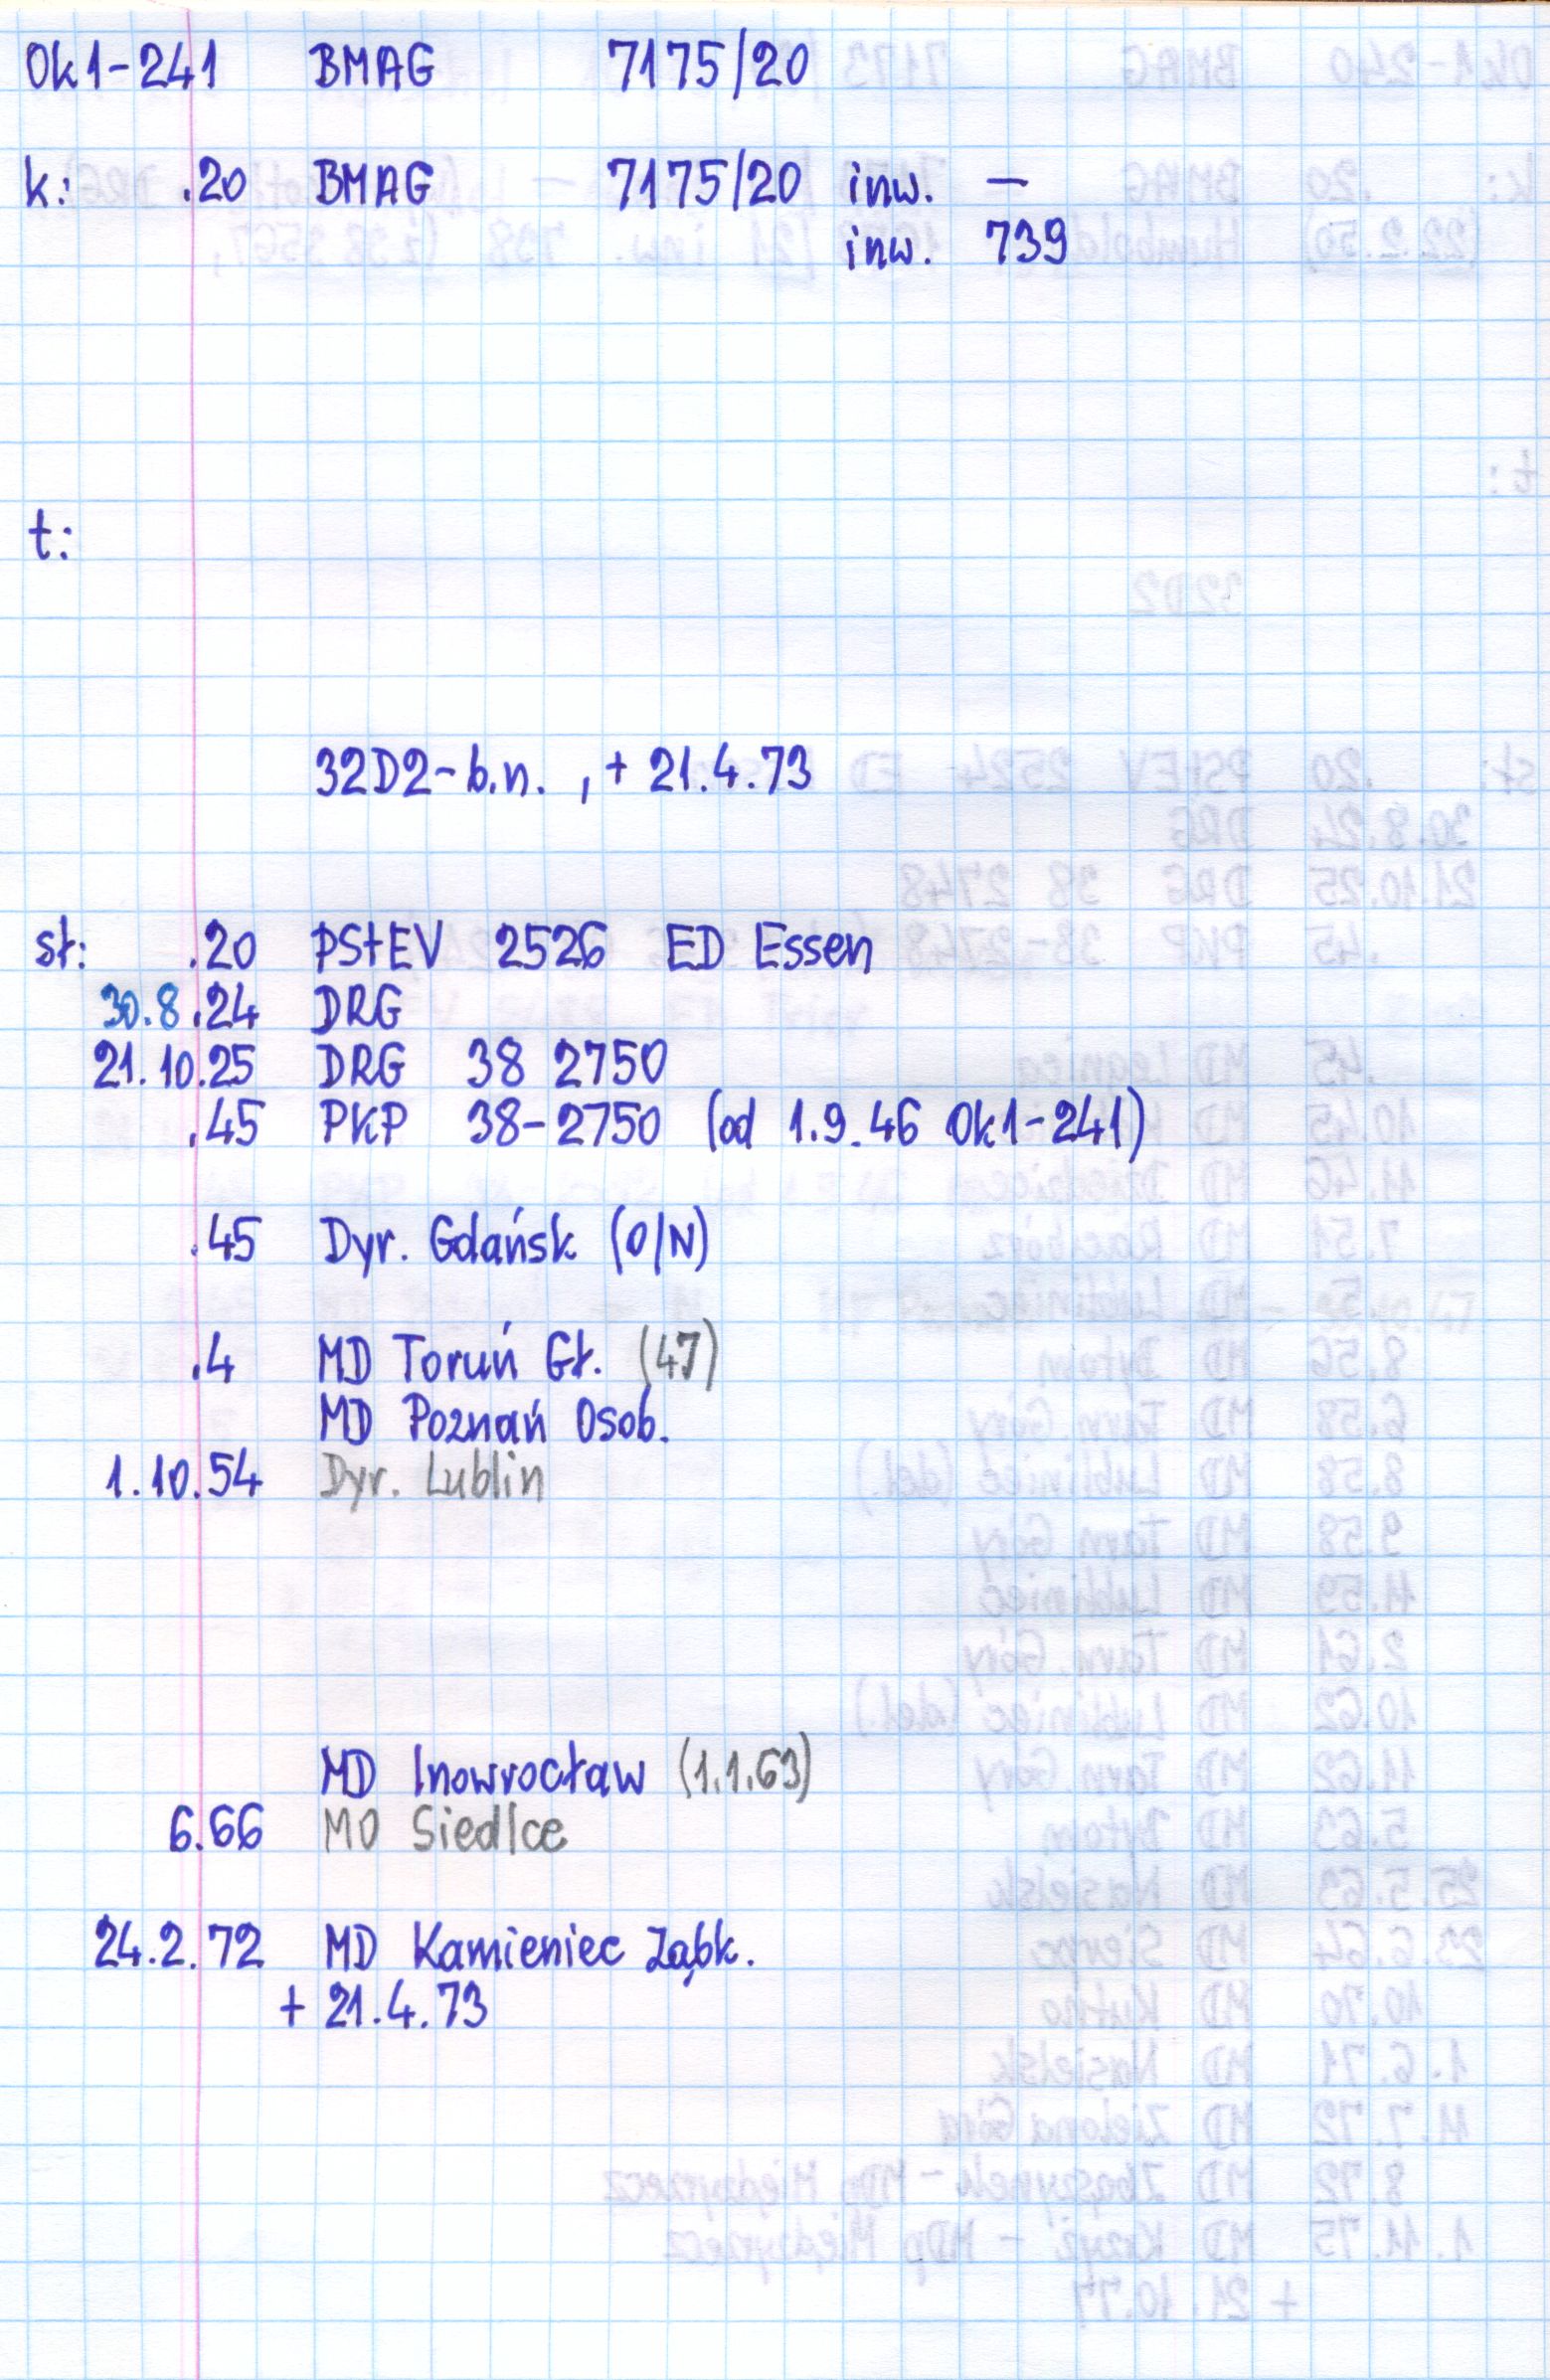 Ok1-241 BMAG 7175/20
k: .20 BMAG 7175/20 inw. —
inw. 739
t:
32D2-b.n. , + 21.4.73
sł: .20 PStEV 2526 ED Essen
30.8.24 DRG
21.10.25 DRG 38 2750
.45 PKP 38-2750 (od 1.9.46 Ok1-241)
.45 Dyr. Gdańsk (O/N)
.4 MD Toruń Gł. (47)
MD Poznań Osob.
1.10.54 Dyr. Lublin
MD Inowrocław (1.1.63)
6.66 MD Siedlce
24.2.72 MD Kamieniec Ząbk.
+ 21.4.73